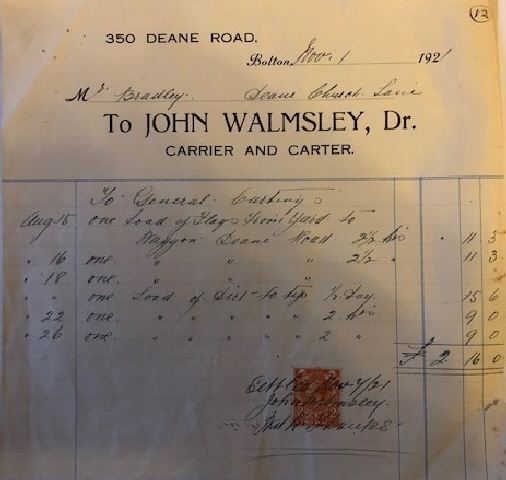 12
350 DEANE ROAD.
Bolton, Nov. 1 1921
Mr Bradley. Deane Church Lane
To JOHN WALMSLEY, Dr.
CARRIER AND CARTER.
To General Carting
Aug 15 one Load of Flags from Yard to
Waggon Deane Road 2½ hrs " 11 3
" 16 one " " " 2½ " 11 3
" 18 one " " "
" one Load of Dirt to tip ½ Day 15 6
" 22 one " " " " 2 hrs 9 0
" 26 one " " " " 2 " 9 0
£ 2 16 0
Settled Nov 4/21
John Walmsley.
With Thanks